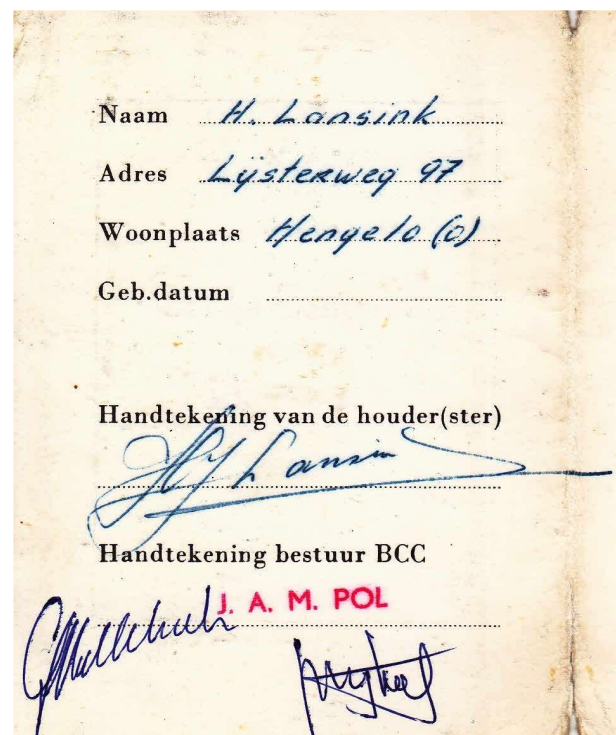 Naam H. Lansink
Adres Lijsterweg 97
Woonplaats Hengelo (O)
Geb.datum
Handtekening van de houder(ster)
HJ Lansink
Handtekening bestuur BCC
J. A. M. POL